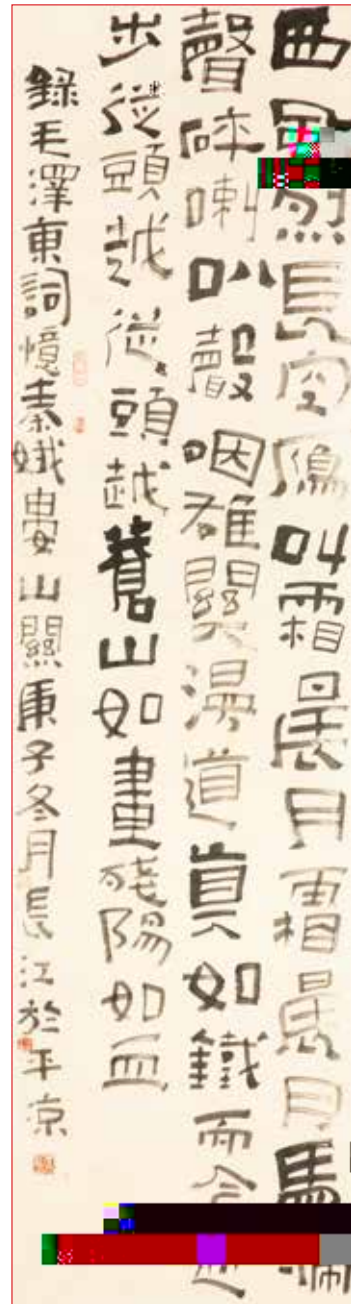 西風烈長空鴈叫霜晨月霜晨月馬蹄
聲碎喇叭聲咽雄關漫道真如鐵而今
步從頭越從頭越蒼山如畫殘陽如血
錄毛澤東詞憶秦娥婁山關庚子冬月長江於平涼